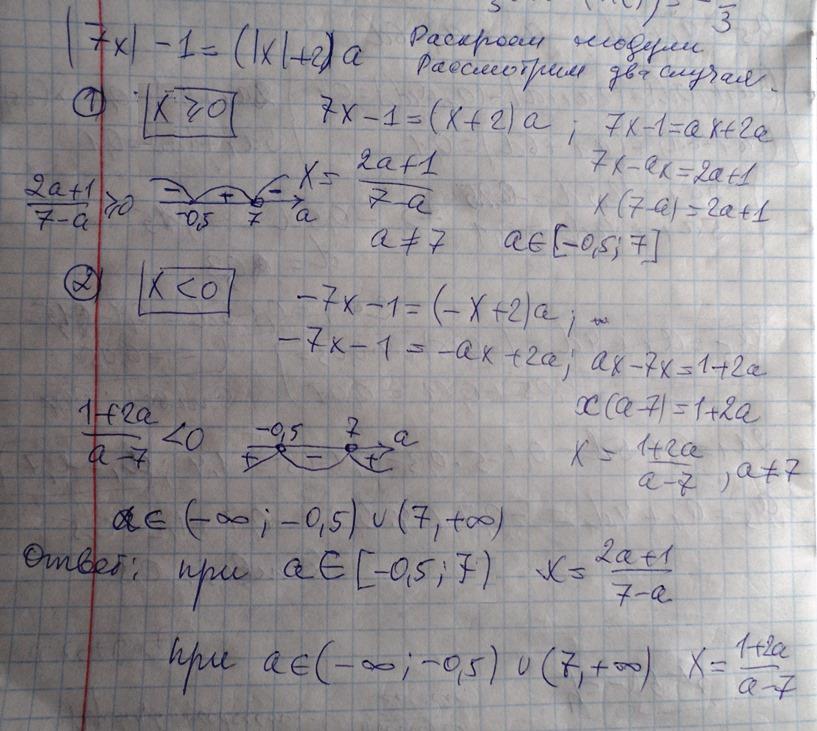 |7x| - 1 = (|x|+2) a Раскроем модули
Рассмотрим два случая.
① x ≥ 0 7x-1=(x+2)a ; 7x-1=ax+2a
7x-ax=2a+1
(2a+1)/(7-a) ≥ 0 - + - -0,5 7 a x = (2a+1)/(7-a) x(7-a)=2a+1
a ≠ 7 a ∈ [-0,5; 7]
② x < 0 -7x-1=(-x+2)a;
-7x-1 = -ax+2a; ax-7x=1+2a
x(a-7)=1+2a
(1+2a)/(a-7) < 0 -0,5 7 a + - + x = (1+2a)/(a-7) , a≠7
a ∈ (-∞; -0,5) ∪ (7, +∞)
Ответ: при a ∈ [-0,5; 7) x = (2a+1)/(7-a)
при a ∈ (-∞; -0,5) ∪ (7, +∞) x = (1+2a)/(a-7)